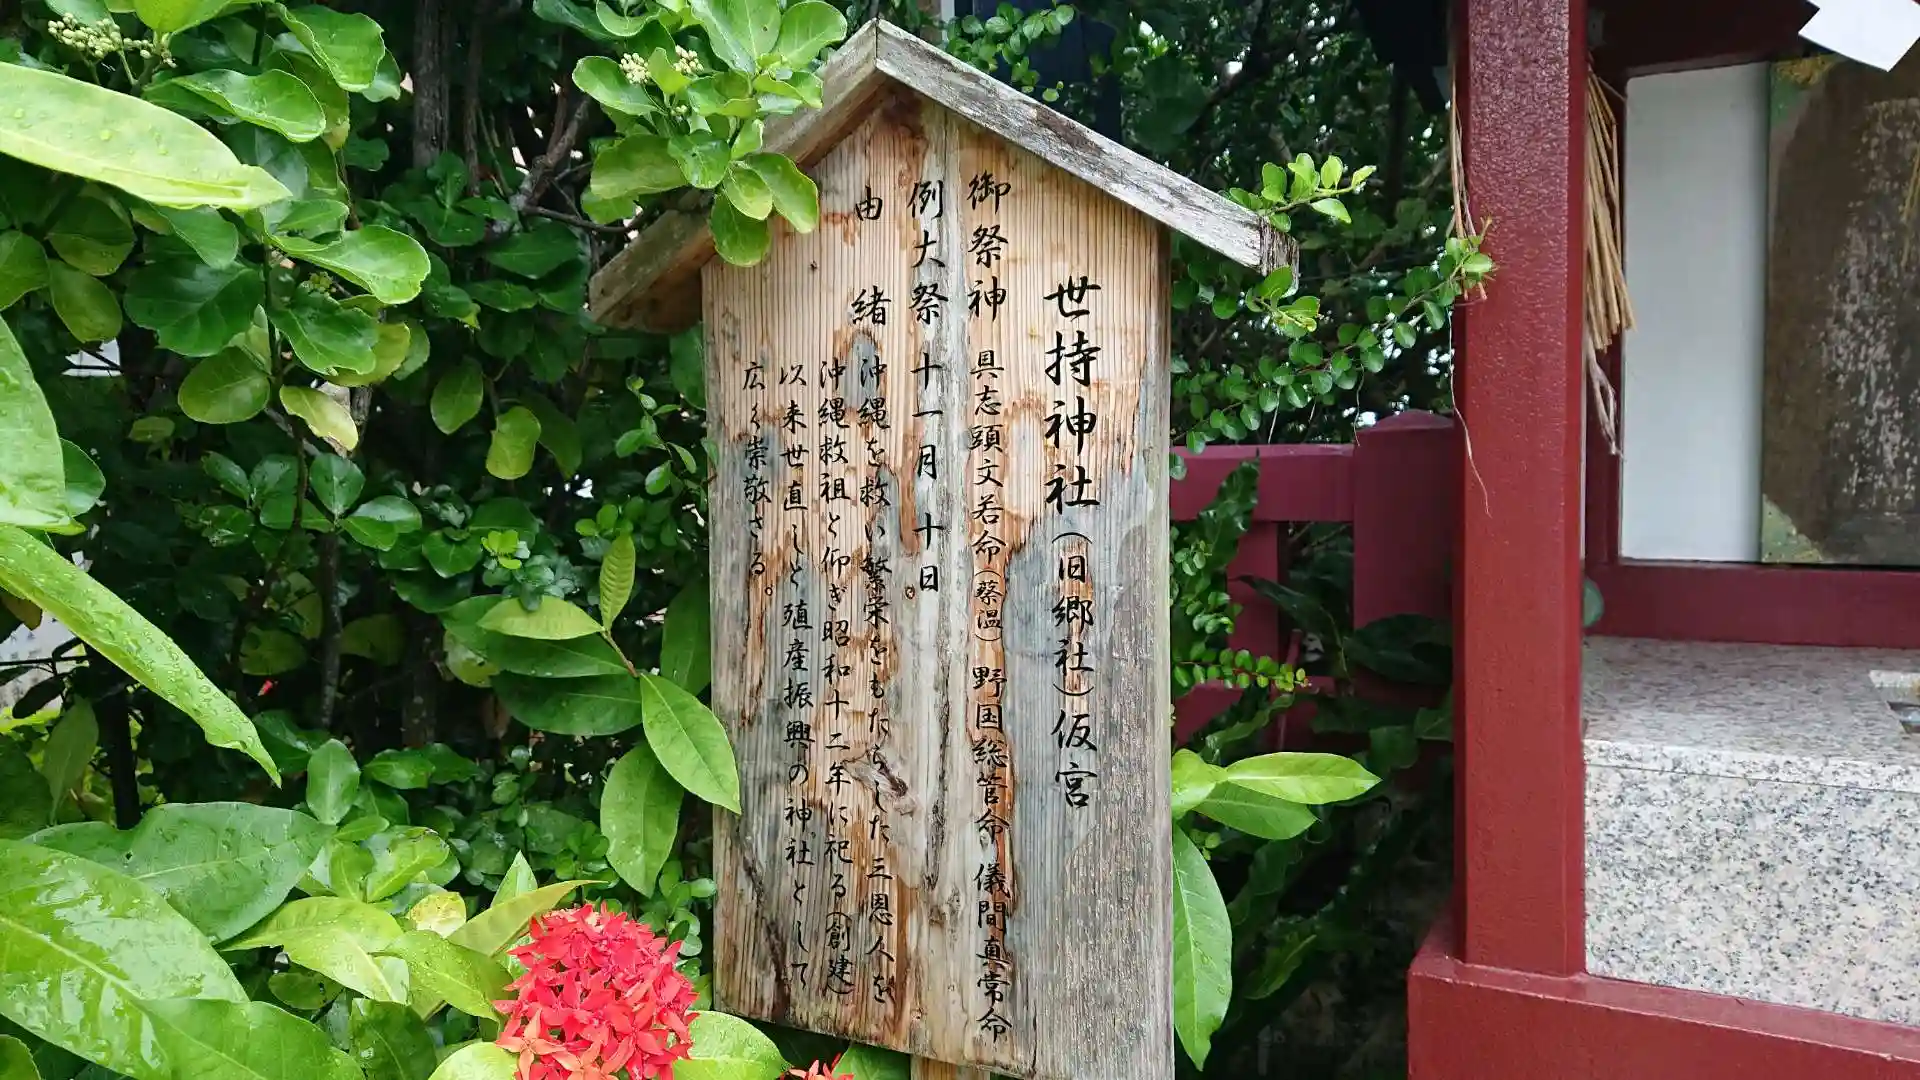 世持神社（旧郷社）仮宮
御祭神 具志頭文若命（蔡温）野国総管命 儀間真常命
例大祭 十一月十日
由緒 沖縄を救い繁栄をもたらした三恩人を
沖縄救祖と仰ぎ昭和十二年に祀る（創建）
以来世直しと殖産振興の神社として
広く崇敬さる。